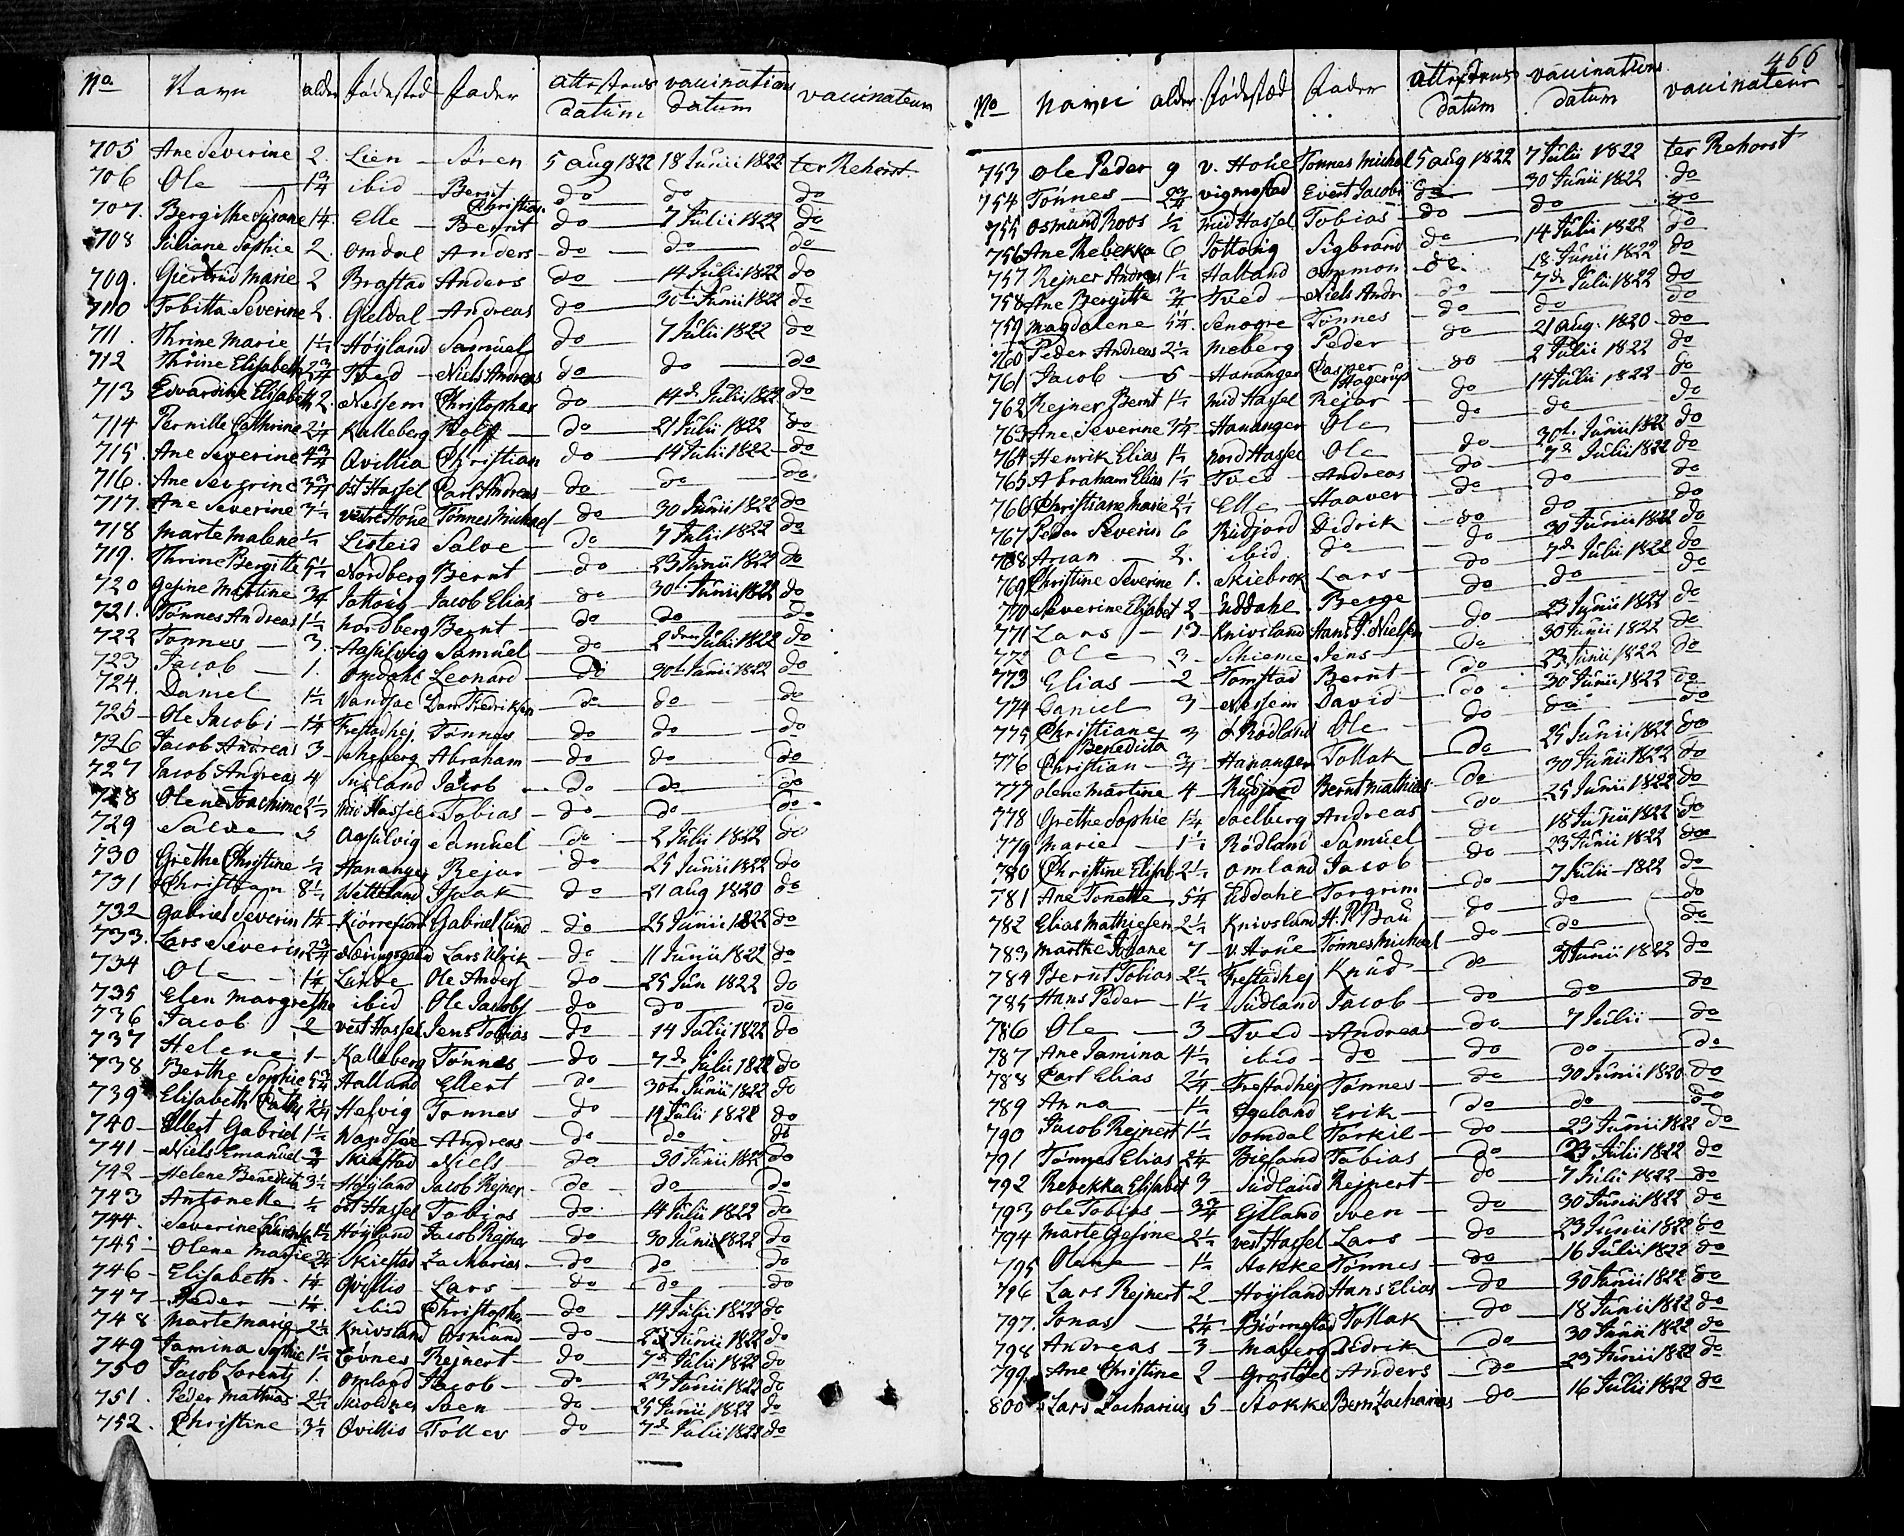 No Navn alder fødested fader attestens datum vaccinations datum vaccinateur
705 Ane Severine 2. Lien Søren 5 aug 1822 18 Junii 1822 ter Rehorst
706 Ole 1 3/4 ibid Bernt Christian do do do
707. Bergithe Susane 1 1/4. Elle Bernt do 7 Julii 1822 do
708 Juliane Sophie 2. omdal Anders do do do
709. Giertrud Marie 2 Brastad Anders do 14 Julii 1822 do
710 Tobitta Severine 2. Gieldal Andreas do 30te Junii 1822 do
711. Thrine Marie 1 1/2 Høyland Samuel do 7 Julii 1822 do
712 Thrine Elisabeth 2 3/4 Tved Niels Andreas do do do
713 Edvardine Elisabeth 2. Nessem Christopher do 14de Julii 1822 do
714 Pernille Cathrine 2 1/4 Kalleberg Rolf do 21 Julii 1822 do
715. Ane Severine 4 3/4 Qvillia Christian do 14 Julii 1822 do
716. Ane Severine 3 3/4 øst Hassel Carl Andreas do do do
717. Ane Severine 3 1/2 vestre Houe Tønnes Michael do 30 Junii 1822 do
718 Marte Malene 1/2 Listeid Salve do 7 Julii 1822 do
719. Thrine Bergitte 5 1/2 Nordberg Bernt do 23 Junii 1822 do
720 Gesine Martine 3/4 Jottvig Jacob Elias do 30te Junii 1822 do
721. Tønnes Andreas 1 1/2 Nordberg Bernt do do do
722 Tønnes 3. Aasulvig Samuel do 2den Julii 1822 do
723 Jacob 1. Opdahl Leonard do 30te Junii 1822 do
724. Daniel 1 1/2 Vandsøe Dan Fredriksen do do do
725 Ole Jacob 1 1/4 Frestadhej Tønnes do do do
726 Jacob Andreas 3 Meberg Abraham do do do
727 Jacob Andreas 4 Sudland Jacob do do do
728 Olene Joachime 2 1/2 Mid Hassel Tobias do do do
729 Salve 5 Aasulvig Samuel do 2 Julii 1822 do
730 Grethe Christine 1/2 Hananger Rejar do 25 Junii 1822 do
731 Christian 8 1/2 Vetteland Isaak do 21 aug 1820 do
732 Gabriel Severin 1 1/4 Kiørrefiord Gabriel Lund do 25 Junii 1822 do
733. Lars Severin 2 3/4 Næringsgaard Lars Ulrik do 11 Junii 1822 do
734 Ole 1 1/4 Lunde Ole Anders do 25 Jun 1822 do
735 Elen Margrethe ibid Ole Jacobs do do do
736 Jacob 2 vest Hassel Jens Tobias do 14 Julii 1822 do
737 Helene 1 Kalleberg Tønnes do 7de Julii 1822 do
738 Berthe Sophie 5 3/4 Halland Ellert do 30te Junii 1822 do
739 Elisabeth Cath 2 1/4 Helvig Tønnes do 14 Julii 1822 do
740 Ellert Gabriel 1 1/2 Vandsøe Andreas do do do
741 Niels Emanuel 3/4 Skiestad Niels do 30 Junii 1822 do
742 Helene Benedicta 3 1/2 Høyland Jacob Rejner do do do
743 Antonette 1/2 øst Hassel Tobias do 14 Julii 1822 do
744. Severine 1 1/2 Høyland Jacob Rejner do 30 Junii 1822 do
745 Olene Marie 2 1/4 Skiestad Zacharias do do do
746 Elisabeth 1 1/4 Qvillio Lars do do do
747 Peder 1 1/4. ibid Christopher do 14 Julii 1822 do
748 Marte Marie 2 1/2 Knivsland Osmund do 23 Junii 1822 do
749 Jamina Sophie 1 1/2 Løvnes Rejnert do 7de Julii 1822 do
750 Jacob Lorentz 1. Omland Jacob do 23 Junii 1822 do
751. Peder Mathias 2 1/2 Skiolnes Sven do 25 Junii 1822 do
752. Christine 3 1/2 Qvillio Tollev do 7de Julii 1822 do
466
No Navn alder fødested fader attestens datum vaccinations datum vaccinateur
753 Ole Peder 9 v. Houe Tønnes Michel 5 aug 1822 7 Julii 1822 ter Rehorst
754 Tønnes 2 3/4 vigmostad Evert Jacob do 30 Junii 1822 do
755 Osmund Roos 1/2 mid Hassel Tobias do do do
756 Ane Rebekka 6 Jottvig Sigbrand do 14 Julii 1822 do
757 Rejner Andreas 1 1/2 Halland Ommon do 18 Junii 1822 do
758 Ane Bergitte 3/4 Tved Niels Andr do 7de Julii 1822 do
759 Magdalene 5 1/4. Senogre Tønnes do do do
760 Peder Andreas 2 1/2 Meberg Peder do 21 aug. 1820 do
761 Jacob 5 Hananger Casper Hagerup do 2 Julii 1822 do
762 Rejner Bernt 1 1/2 Mid Hassel Rejar do 14 Julii 1822 do
763 Ane Severine 3 1/4 Hananger Ole do do do
764 Henrik Elias 1 1/2 nord Hassel Ole do 30te Junii 1822 do
765 Abraham Elias 1 1/2 Tved Andreas do 7de Julii 1822 do
766 Christiane Marie 2 1/2 Elle Haaver do do do
767 Peder Severin 6 Rudjord Didrik do do do
768 Arian 2. ibid do do 30 Junii 1822 do
769 Christine Severine 1. Skiebrok Lars do 7de Julii 1822 do
770 Severine Elisabet 2 Uddahl Berge do do do
771 Lars 13 Knivsland Hans J. Nielsen do 23 Junii 1822 do
772 Ole 3 Schieme Jens do 30 Junii 1822 do
773 Elias 2 Tomstad Bernt do 23 Junii 1822 do
774 Daniel 3 Nessem David do 30 Junii 1822 do
775 Christiane Benedicta 3 ø Rødland Ole do do do
776 Christian 3/4 Hananger Tollak do 25 Junii 1822 do
777 Olene Martine 4 Rudjord Bernt Mathias do 30 Junii 1822 do
778 Grethe Sophie 1 1/4 Soelberg Andreas do 25 Junii 1822 do
779 Marie 1 1/2 Rødland Samuel do 18 Junii 1822 do
780 Christine Elisab 2 1/2 Omland Jacob do 23 Junii 1822 do
781 Ane Tonette 5 1/4 Uddahl Torgrim do 7 Julii 1822 do
782 Elias Mathiesen 2 1/2 Knivsland H. P. Bau do do do
783 Marthe Juliane 7 v. Houe Tønnes Michael do do do
784 Bernt Tobias 2 1/2 Frestadhej Knud do 30 Junii 1822 do
785 Hans Peder 1 1/2 Sudland Jacob do do do
786 Ole 3 Tved Andreas do 7 Julii do
787 Ane Jamina 4 1/2 ibid do do do do
788 Carl Elias 2 1/4 Frestadhej Tønnes do 30 Junii 1820 do
789 Anna 1 1/2 Egeland Erik do do do
790 Jacob Rejnert 1 1/2 Somdal Torkil do 23 Junii 1822 do
791 Tønnes Elias 2 1/4 Bieland Tobias do 23 Julii 1822 do
792 Rebekka Elisabet 3 Sudland Rejnert do 7 Julii 1822 do
793 Ole Tobias 3 3/4 Eitland Sven do 30 Junii 1822 do
794 Marte Gesine 2 1/2 vest Hassel Lars do 23 Junii 1822 do
795 Olene 1 1/2 Stokke Tønnes do 16 Julii 1822 do
796 Lars Rejnert 2 Høyland Hans Elias do 30 Junii 1822 do
797. Jonas 2 1/4 Biørnestad Tollak do 18 Junii 1822 do
798 Andreas 3 Maberg Didrik do 30 Junii 1822 do
799. Ane Christine 2 Grøstøl Anders do 23 Junii 1822 do
800 Lars Zacharius 5 Stokke Bernt Zacharias do 16 Julii 1822 do